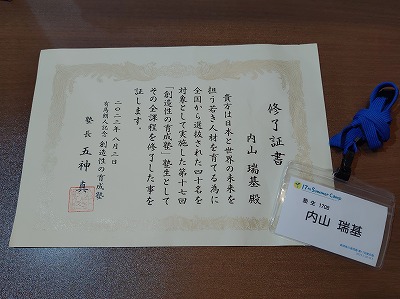 修了証書
内山 瑞基 殿
貴方は日本と世界の未来を
担う若き人材を育てる為に
全国から選抜された四十名を
対象として実施した第十七回
「創造性の育成塾」塾生として
その全課程を修了した事を
証します。
二〇二二年八月三日
有馬朗人記念 創造性の育成塾
塾長 五神 真
17th Summer Camp
塾生 1705
内山 瑞基